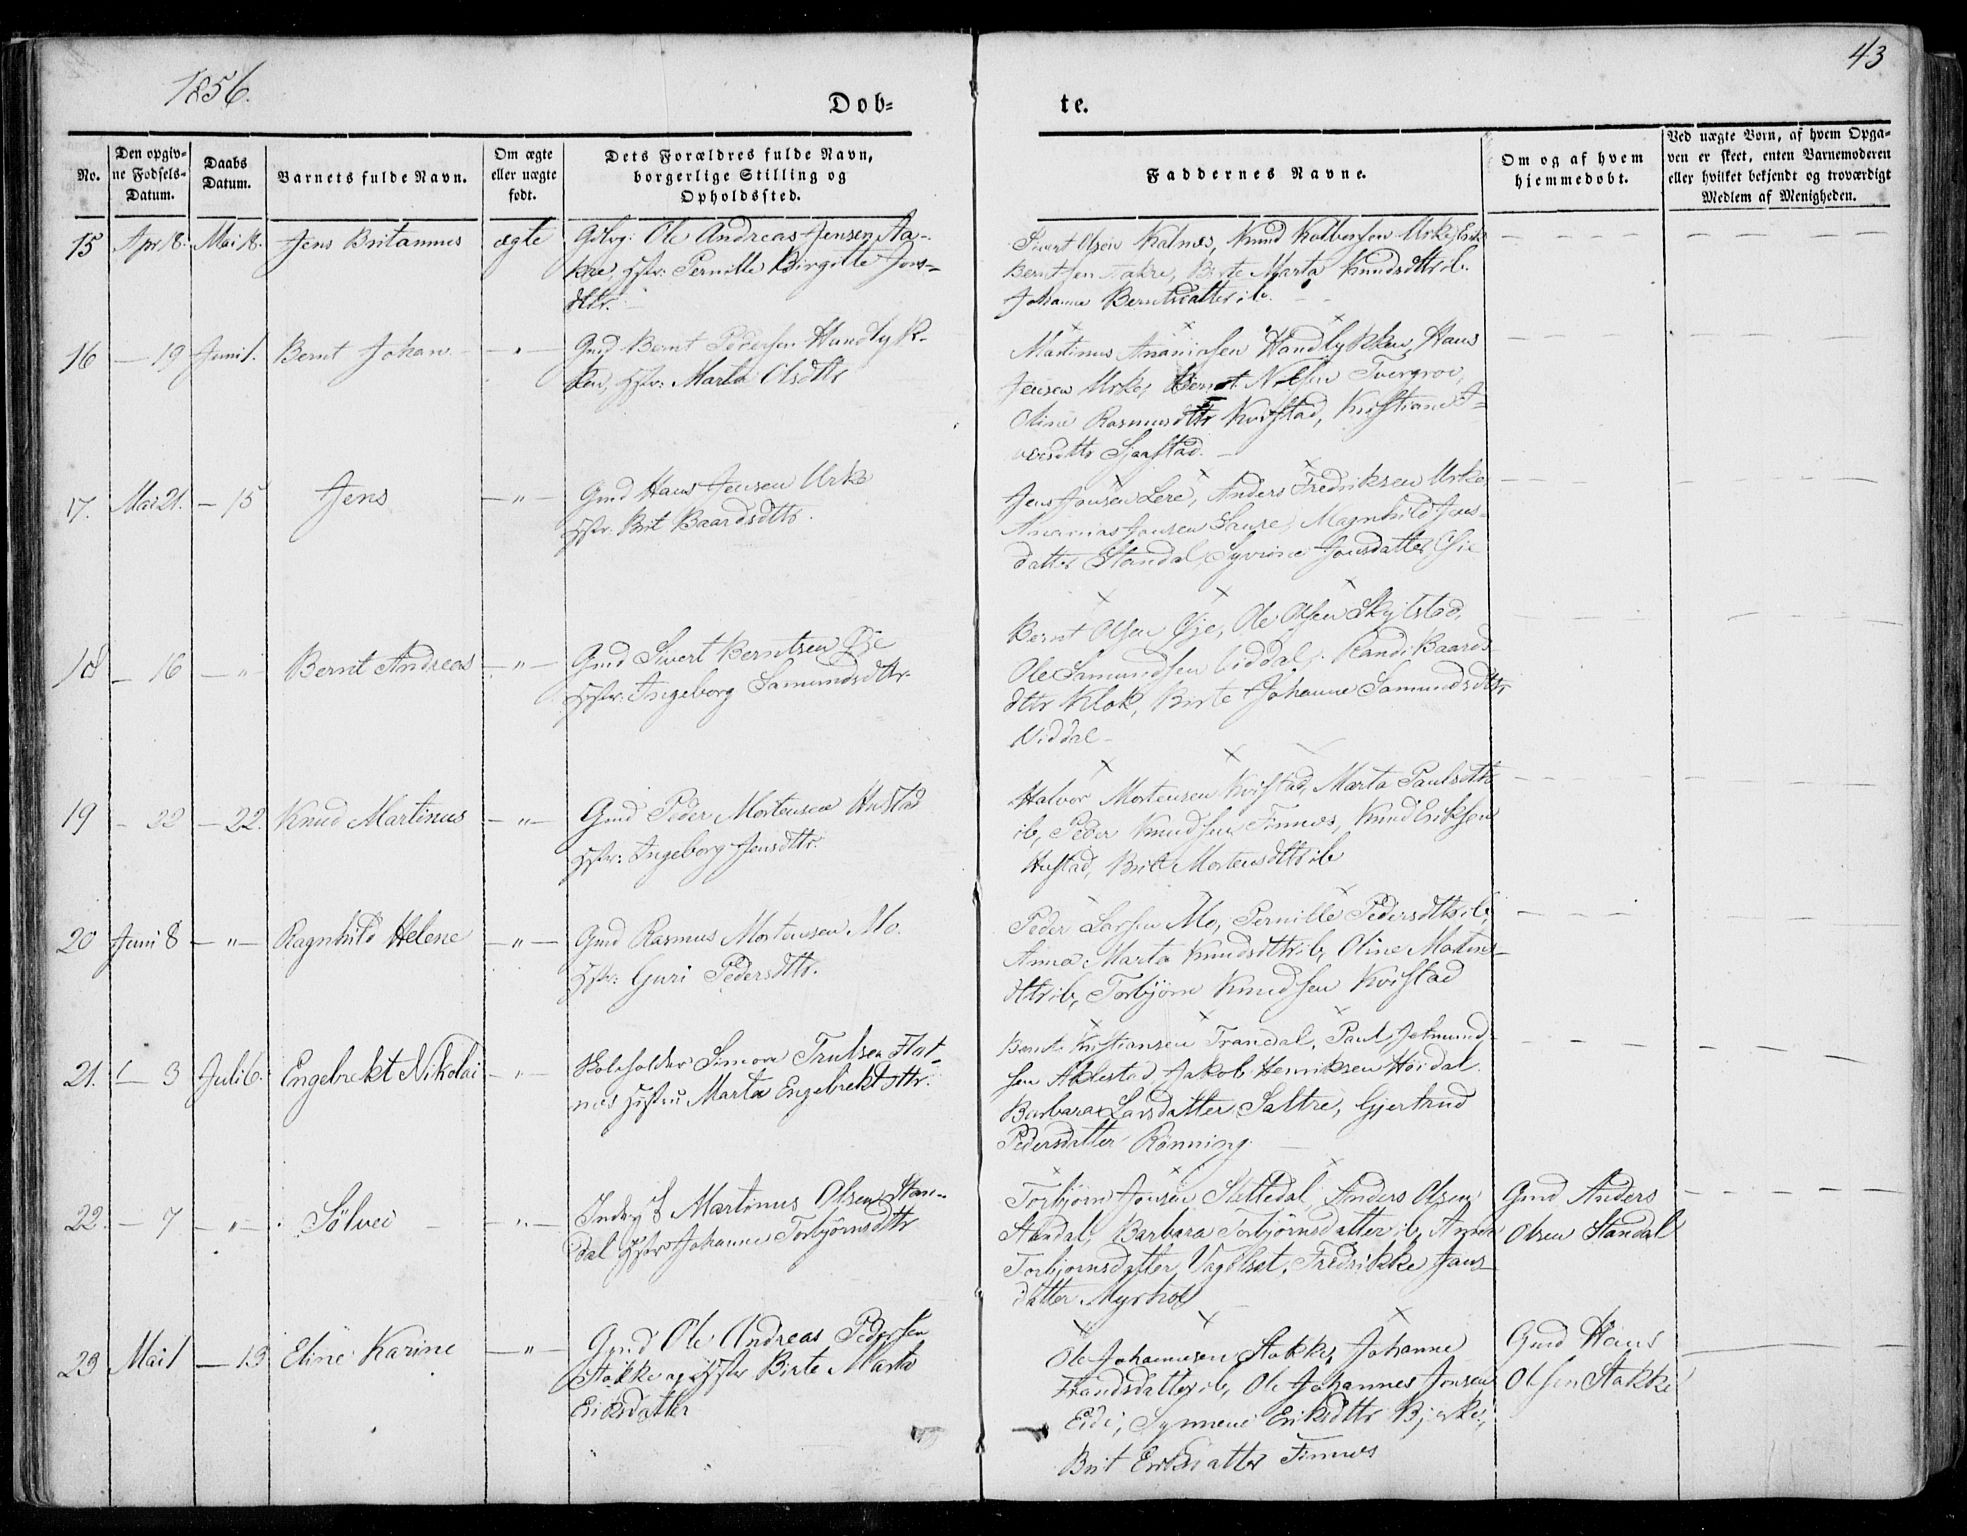 1856.
43
Dob-
te.
No.
Den opgiv-
ne Fødsels-
Datum.
Daabs
Datum.
Barnets fulde Navn.
Om ægte
eller uægte
født.
Dets Forældres fulde Navn,
borgerlige Stilling og
Opholdssted.
Faddernes Navne.
Om og af hvem
hjemmedøbt.
Ved uægte Børn, af hvem Opga-
ven er skeet, enten Barnemoderen
eller hvilket bekjendt og troværdigt
Medlem af Menigheden.
15 Apr 18. Mai 18. Jens Britannus ægte
Ole Andreas Jensen Aa-
kre, Hstr: Pernille Birgitte Jens-
dttr.
Sivert Olsen Kalnæs, Knud Urke, Erik
Berntsen Aakre, Birte Marta Knudsdttr ib.
Johanne Berntsdatter ib.
16 — 19 Juni 1. Bernt Johan — " —
Gmd Bernt Pedersen Handlyk-
ken, Hstr: Marta Olsdttr
Martinus Ananiasen Handlykken, Hans
Jensen Urke, Bernt Nilsen Tvergrov,
Oline Rasmusdttr Kvistad, Kristiane I-
versdttr Sjaastad.
17. Mai 21. — 15 Jens — " —
Gmd Hans Jensen Urke
Hstr. Brit Baardsdttr.
Jens Jonsen Lere, Anders Fredriksen Urke,
Ananias Jensen Saure, Magnhild Jens-
datter Standal, Syvrine Jonsdatter Øie
18 — 16 — " — Bernt Andreas — " —
Gmd Sivert Berntsen Øje
Hstr: Ingeborg Samundsdttr.
Bernt Olsen Øje, Ole Olsen Skylstad,
Ole Samundsen Viddal, Randi Baards-
dttr Klok, Birte Johanne Samundsdttr
Viddal
19 — 22 — 22. Knud Martinus — " —
Gmd Peder Mortensen Hustad
Hstr: Ingeborg Jensdttr.
Halvor Mortensen Kvistad, Marta Paulsdttr
ib, Peder Knudsen Finnes, Knud Eriksen
Hustad, Brit Mortensdttr ib
20 Juni 8 — " — Ragnhild Helene — " —
Gmd Rasmus Mortensen Mo.
Hstr: Guri Pedersdttr.
Peder Larsen Mo, Pernille Pedersdttr ib,
Anna Marta Knudsdttr ib, Oline Mortens-
dttr ib, Torbjørn Knudsen Kvistad
21. — 3 Juli 6. Engebrekt Nikolai — " —
Skoleholder Simon Trulsen Flot-
nes Hustru Marta Engebrektsdttr.
Bernt Kristiansen Trandal, Paul Jetmund-
sen Aklestad Jakob Henriksen Höidal.
Barbara Larsdatter Sætre, Gjertrud
Pedersdatter Rönning
22. — 7 — " — Sölvei — " —
Martinus Olsen Stan-
dal Hstr Johanne Torbjörnsdttr
Torbjörn Jonsen Slettedal, Anders Olsen
Standal, Barbara Torbjörnsdatter ib, Anne
Torbjornsdatter Vagelset, Fredrikke Jans-
datter Myrhol
Gmd Anders
Olsen Standal
23 Mai 1 — 13 Eline Karine — " —
Gmd Ole Andreas Pedersen
Stokke og Hstr Birte Marta
Eriksdatter
Ole Johannesen Stokke, Johanne
Frandsdatter ib, Ole Johannes Jonsen
Eide, Synneve Eriksdttr Bjerke,
Brit Eriksdatter Finnes
Gmd Hans
Olsen Stokke